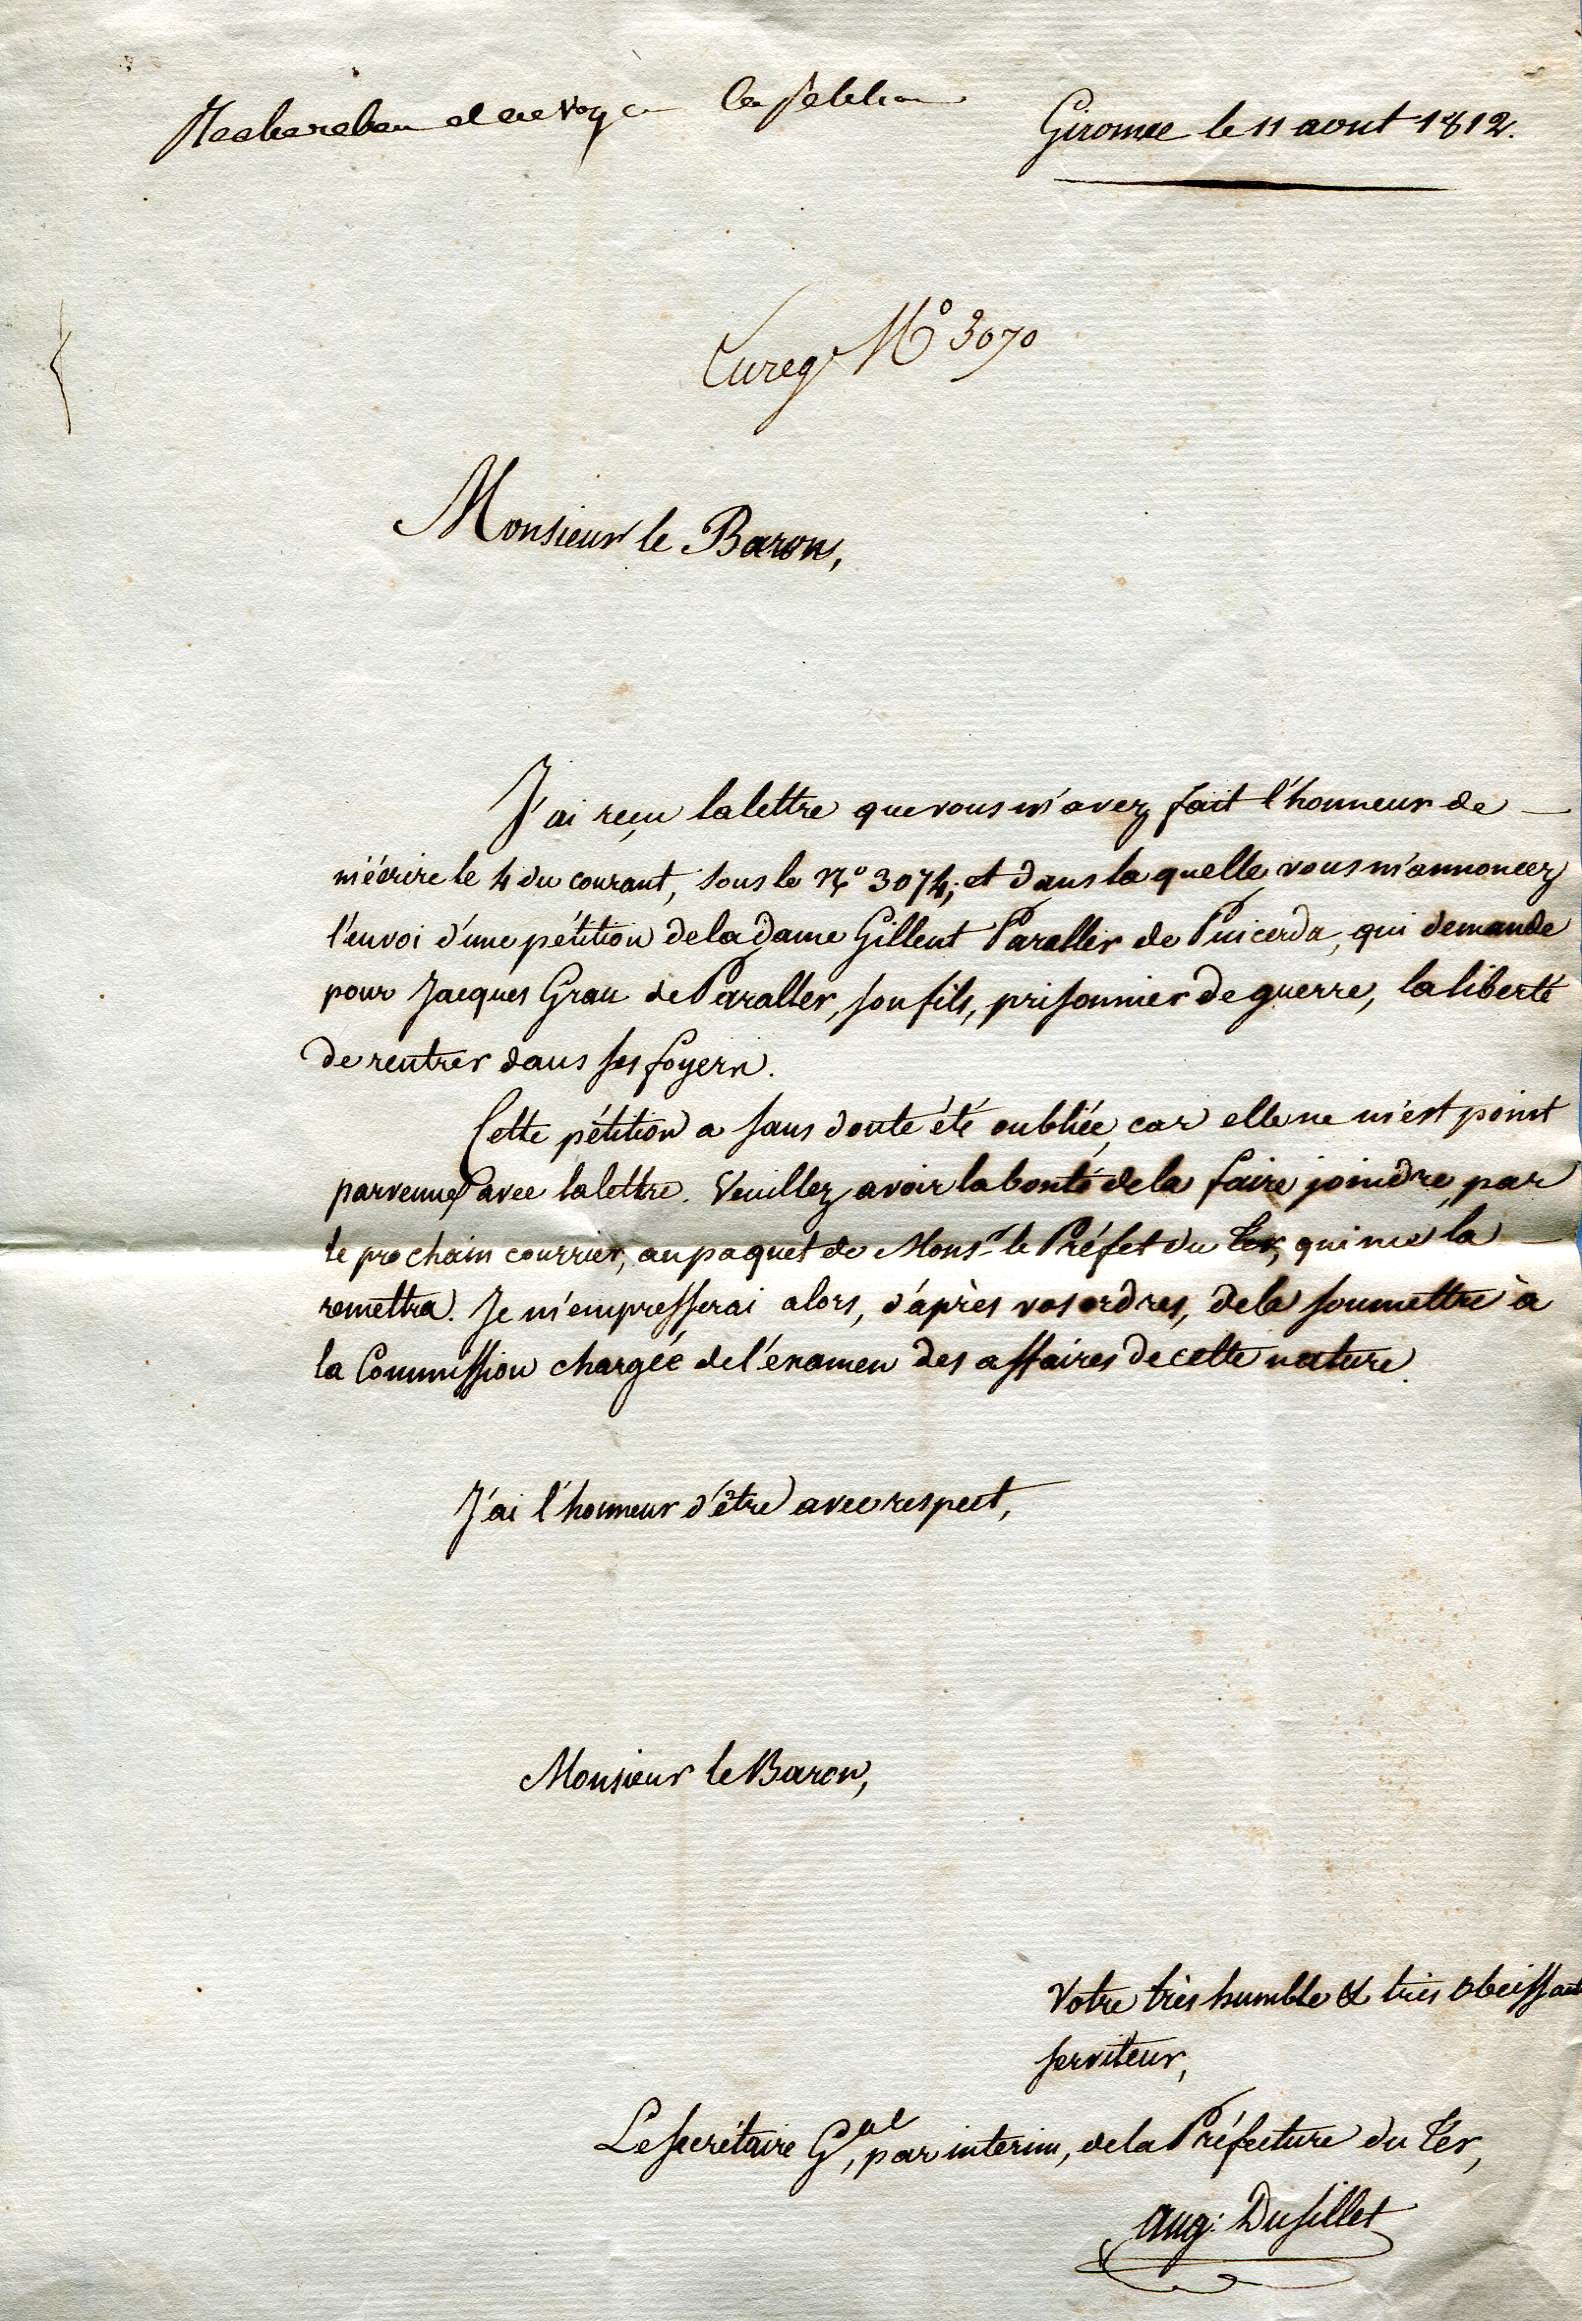 la petition
Gironne le 11 aout 1812.
Enreg. N° 3070
Monsieur le Baron,
J'ai reçu la lettre que vous m'avez fait l'honneur de
m'écrire le 4 du courant, sous le N.° 3074; et dans la quelle vous m'annoncez
l'envoi d'une pétition de la dame Gillent Paraller de Puicerda, qui demande
pour Jacques Grau de Paraller, son fils, prisonnier de guerre, la liberté
de rentrer dans ses foyers.
Cette pétition a sans doute été oubliée, car elle ne m'est point
parvenue avec la lettre. Veuillez avoir la bonté de la faire joindre, par
le prochain courrier, au paquet de Mons.r le Préfet du Ter, qui me la
remettra. Je m'empresserai alors, d'après vos ordres, de la soumettre à
la Commission chargée de l'examen des affaires de cette nature.
J'ai l'honneur d'être avec respect,
Monsieur le Baron,
Votre très humble & très obeissant
serviteur,
Le secrétaire G.al, par interim, de la Préfecture du Ter,
Aug: Dusillet